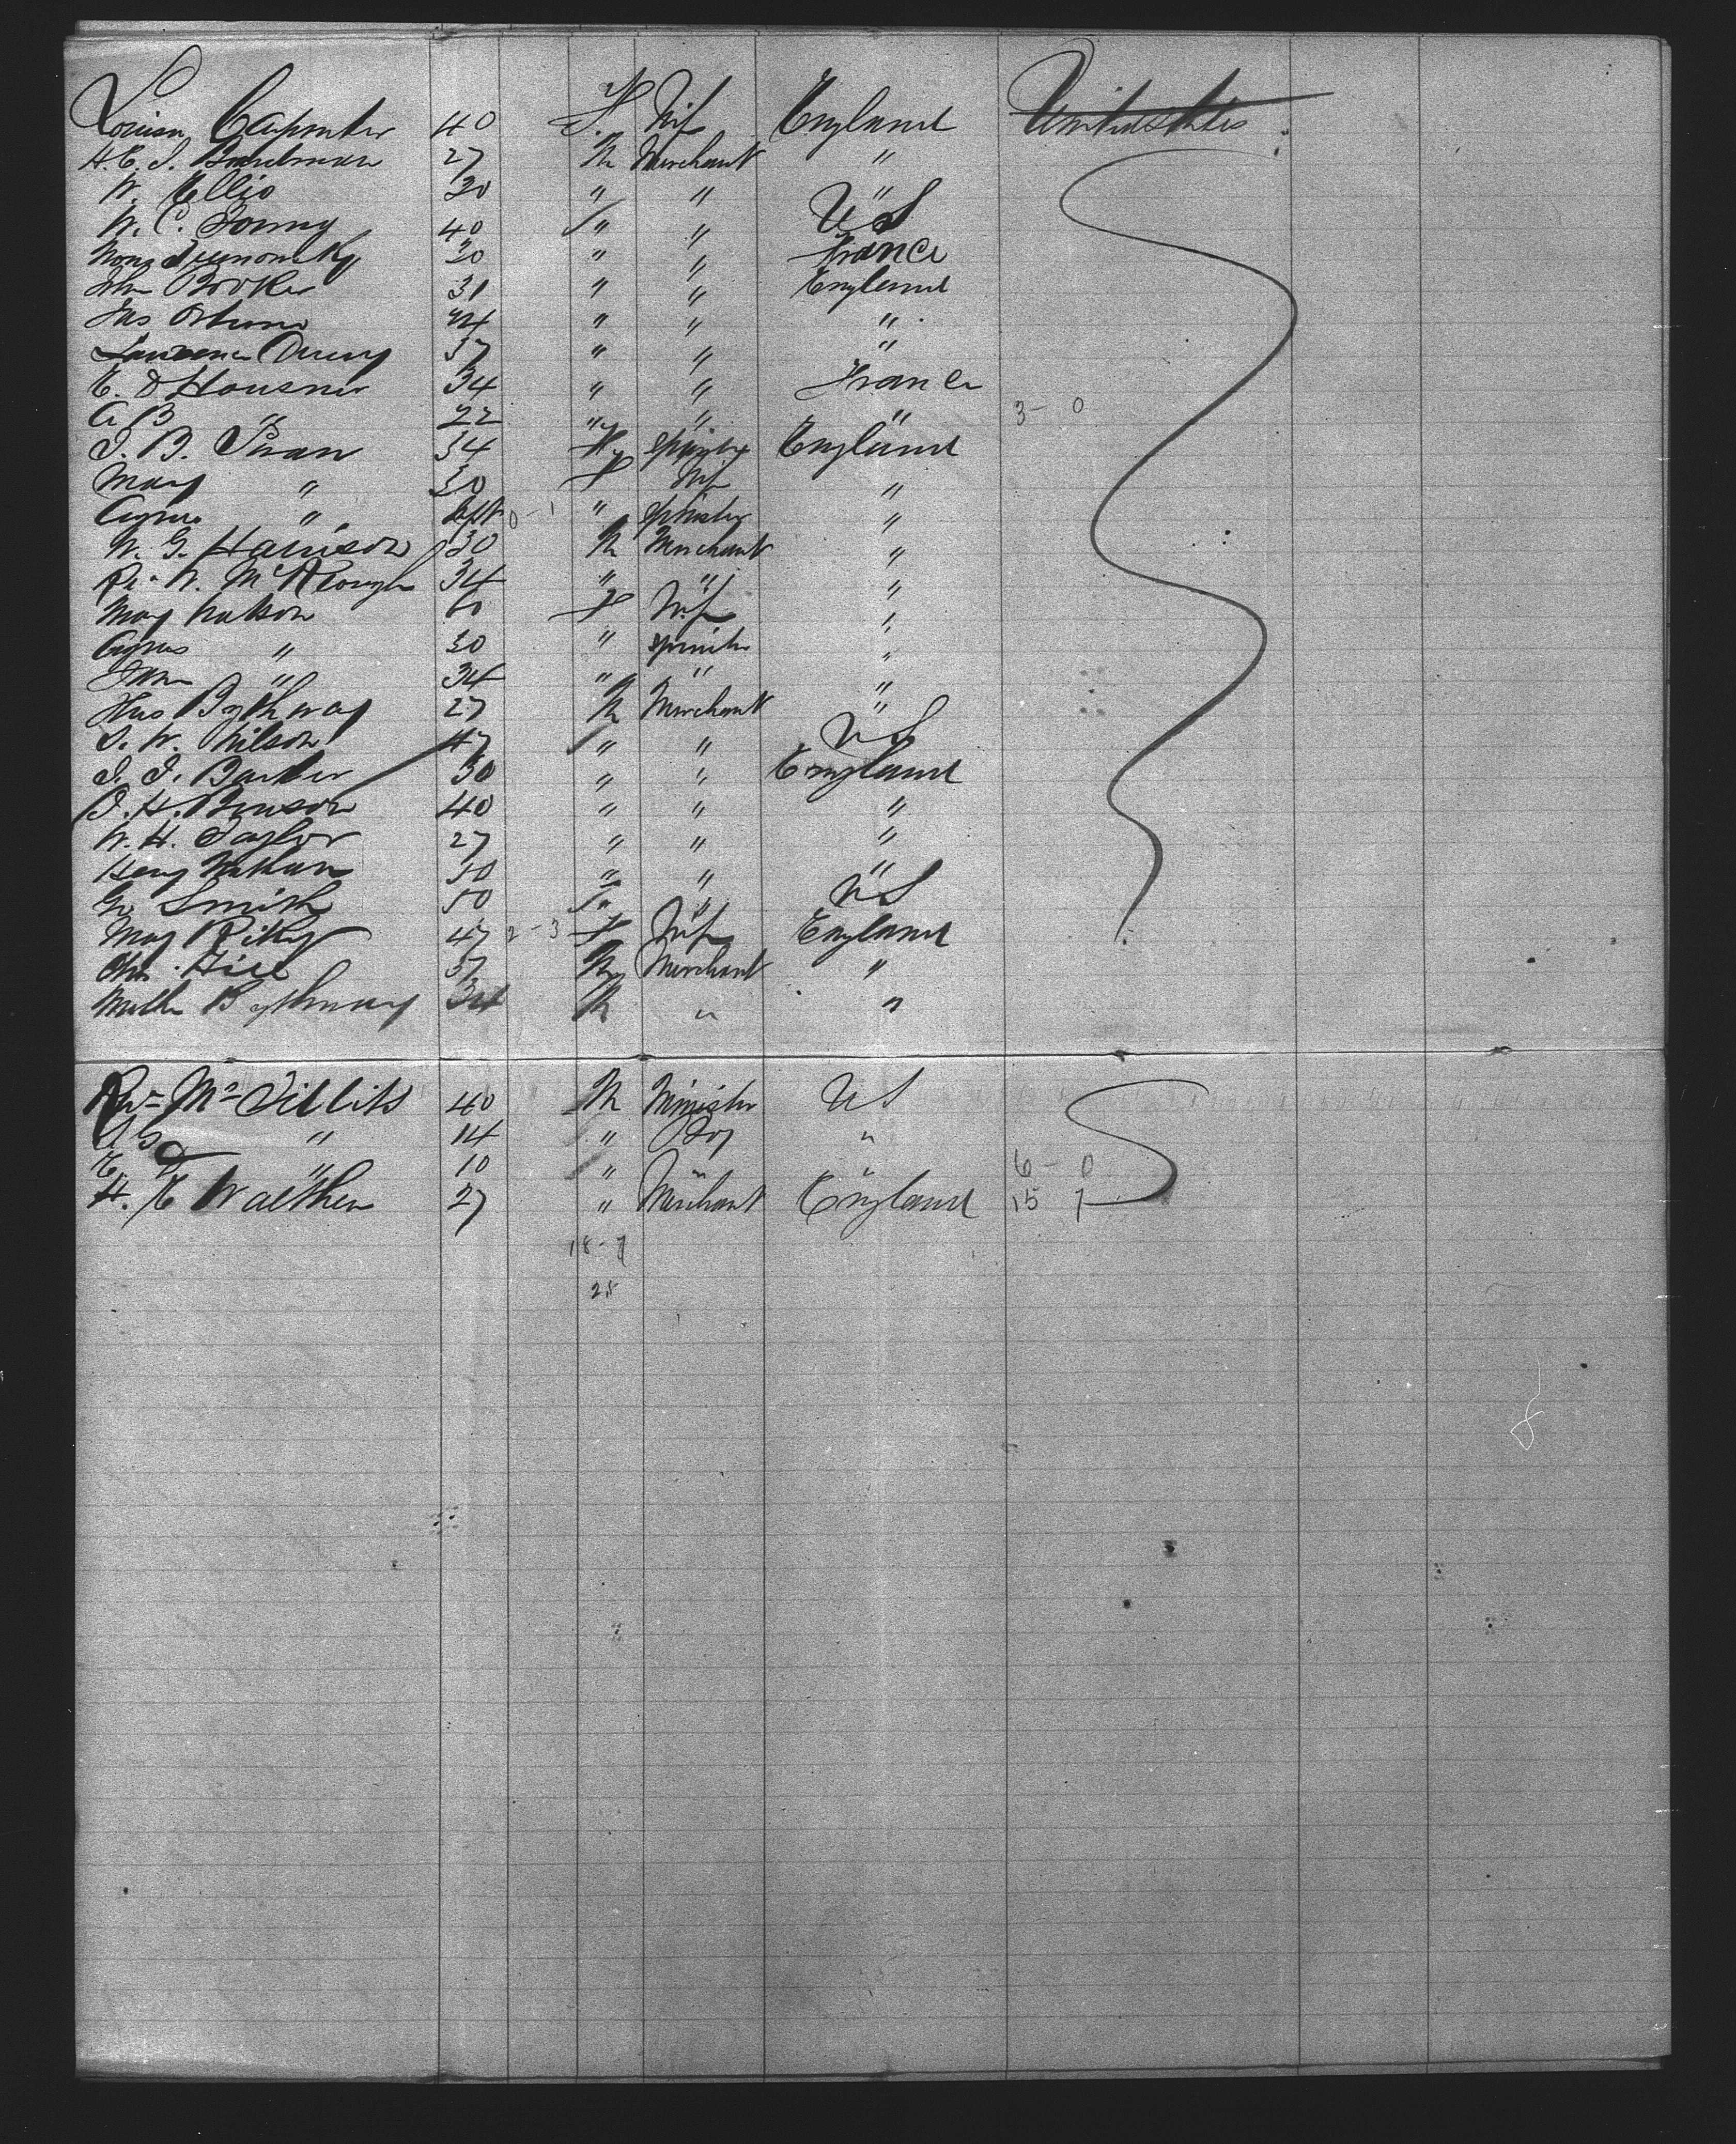 Louisa Carpenter 40 F. Wife England United States
H. E. J. Boardman 27 M Merchant "
W. Ellis 30 " " "
W. C. Young 40 " " US
20 " " France
John Broker 31 " " England
Jas Osborne 44 " " "
Lawrence 37 " " "
E. D Hausner 34 " " France
A B " 22 " " " 3 - 0
J. B. Swan 34 England
Mary " 30 F Wife "
Agnes " 0 - 1 " Spinster "
W. G. Harrison 30 M Merchant "
34 " " "
Mary Watson 60 F Wife "
Agnes " 30 " Spinster "
" 34 " " "
Thos Bythway 27 M Merchant "
J. W. Wilson 47 " " US
J. J. Barker 30 " " England
J. H. Benson 40 " " "
W. H. Taylor 27 " " "
Henry Nathan 50 " " "
Geo Smith 50 " " US
Mary Riley 47 2 - 3 F Wife England
Hill 37 M Merchant "
Bythway 34 M " "
Rev Mr Tillits 40 M Minister US
" 14 " Boy "
E. " 10 " " 6 - 0
H. E Walther 27 " Merchant England 15 7
18 - 7
25